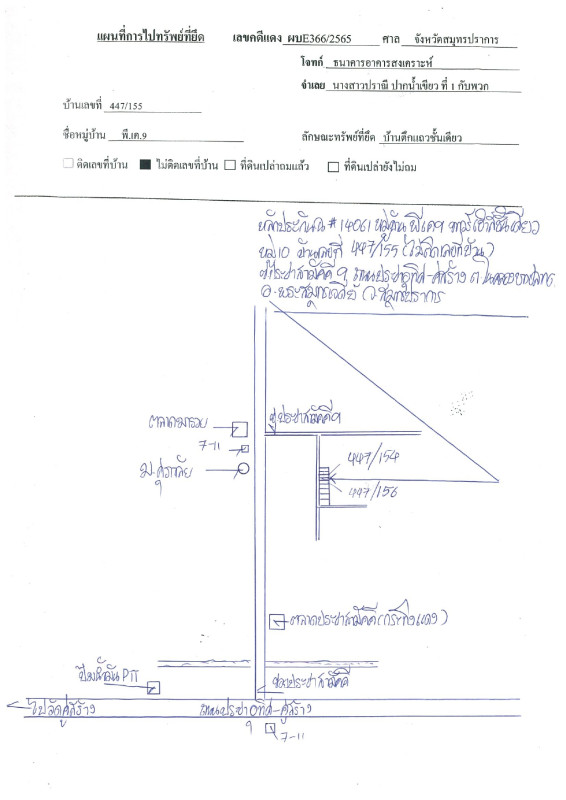 แผนที่การไปทรัพย์ที่ยึด เลขคดีแดง ผบE366/2565 ศาล จังหวัดสมุทรปราการ
โจทก์ ธนาคารอาคารสงเคราะห์
จำเลย นางสาวปราณี ปากน้ำเขียว ที่ 1 กับพวก
บ้านเลขที่ 447/155
ชื่อหมู่บ้าน พี.เค.9 ลักษณะทรัพย์ที่ยึด บ้านตึกแถวชั้นเดียว
ติดเลขที่บ้าน ไม่ติดเลขที่บ้าน ที่ดินเปล่าถมแล้ว ที่ดินเปล่ายังไม่ถม
# 14061
บ้านเลขที่ 447/155 (ไม่ติดเลขที่บ้าน)
ถนนประชาอุทิศ-คู่สร้าง ต.ในคลองบางปลากด
อ.พระสมุทรเจดีย์ จ.สมุทรปราการ
7-11
447/154
447/156
ตลาดประชาสามัคคี (กระทิงแดง)
ปั๊มน้ำมัน PTT
ซอยประชาสามัคคี
ไปวัดคู่สร้าง ถนนประชาอุทิศ-คู่สร้าง
7-11